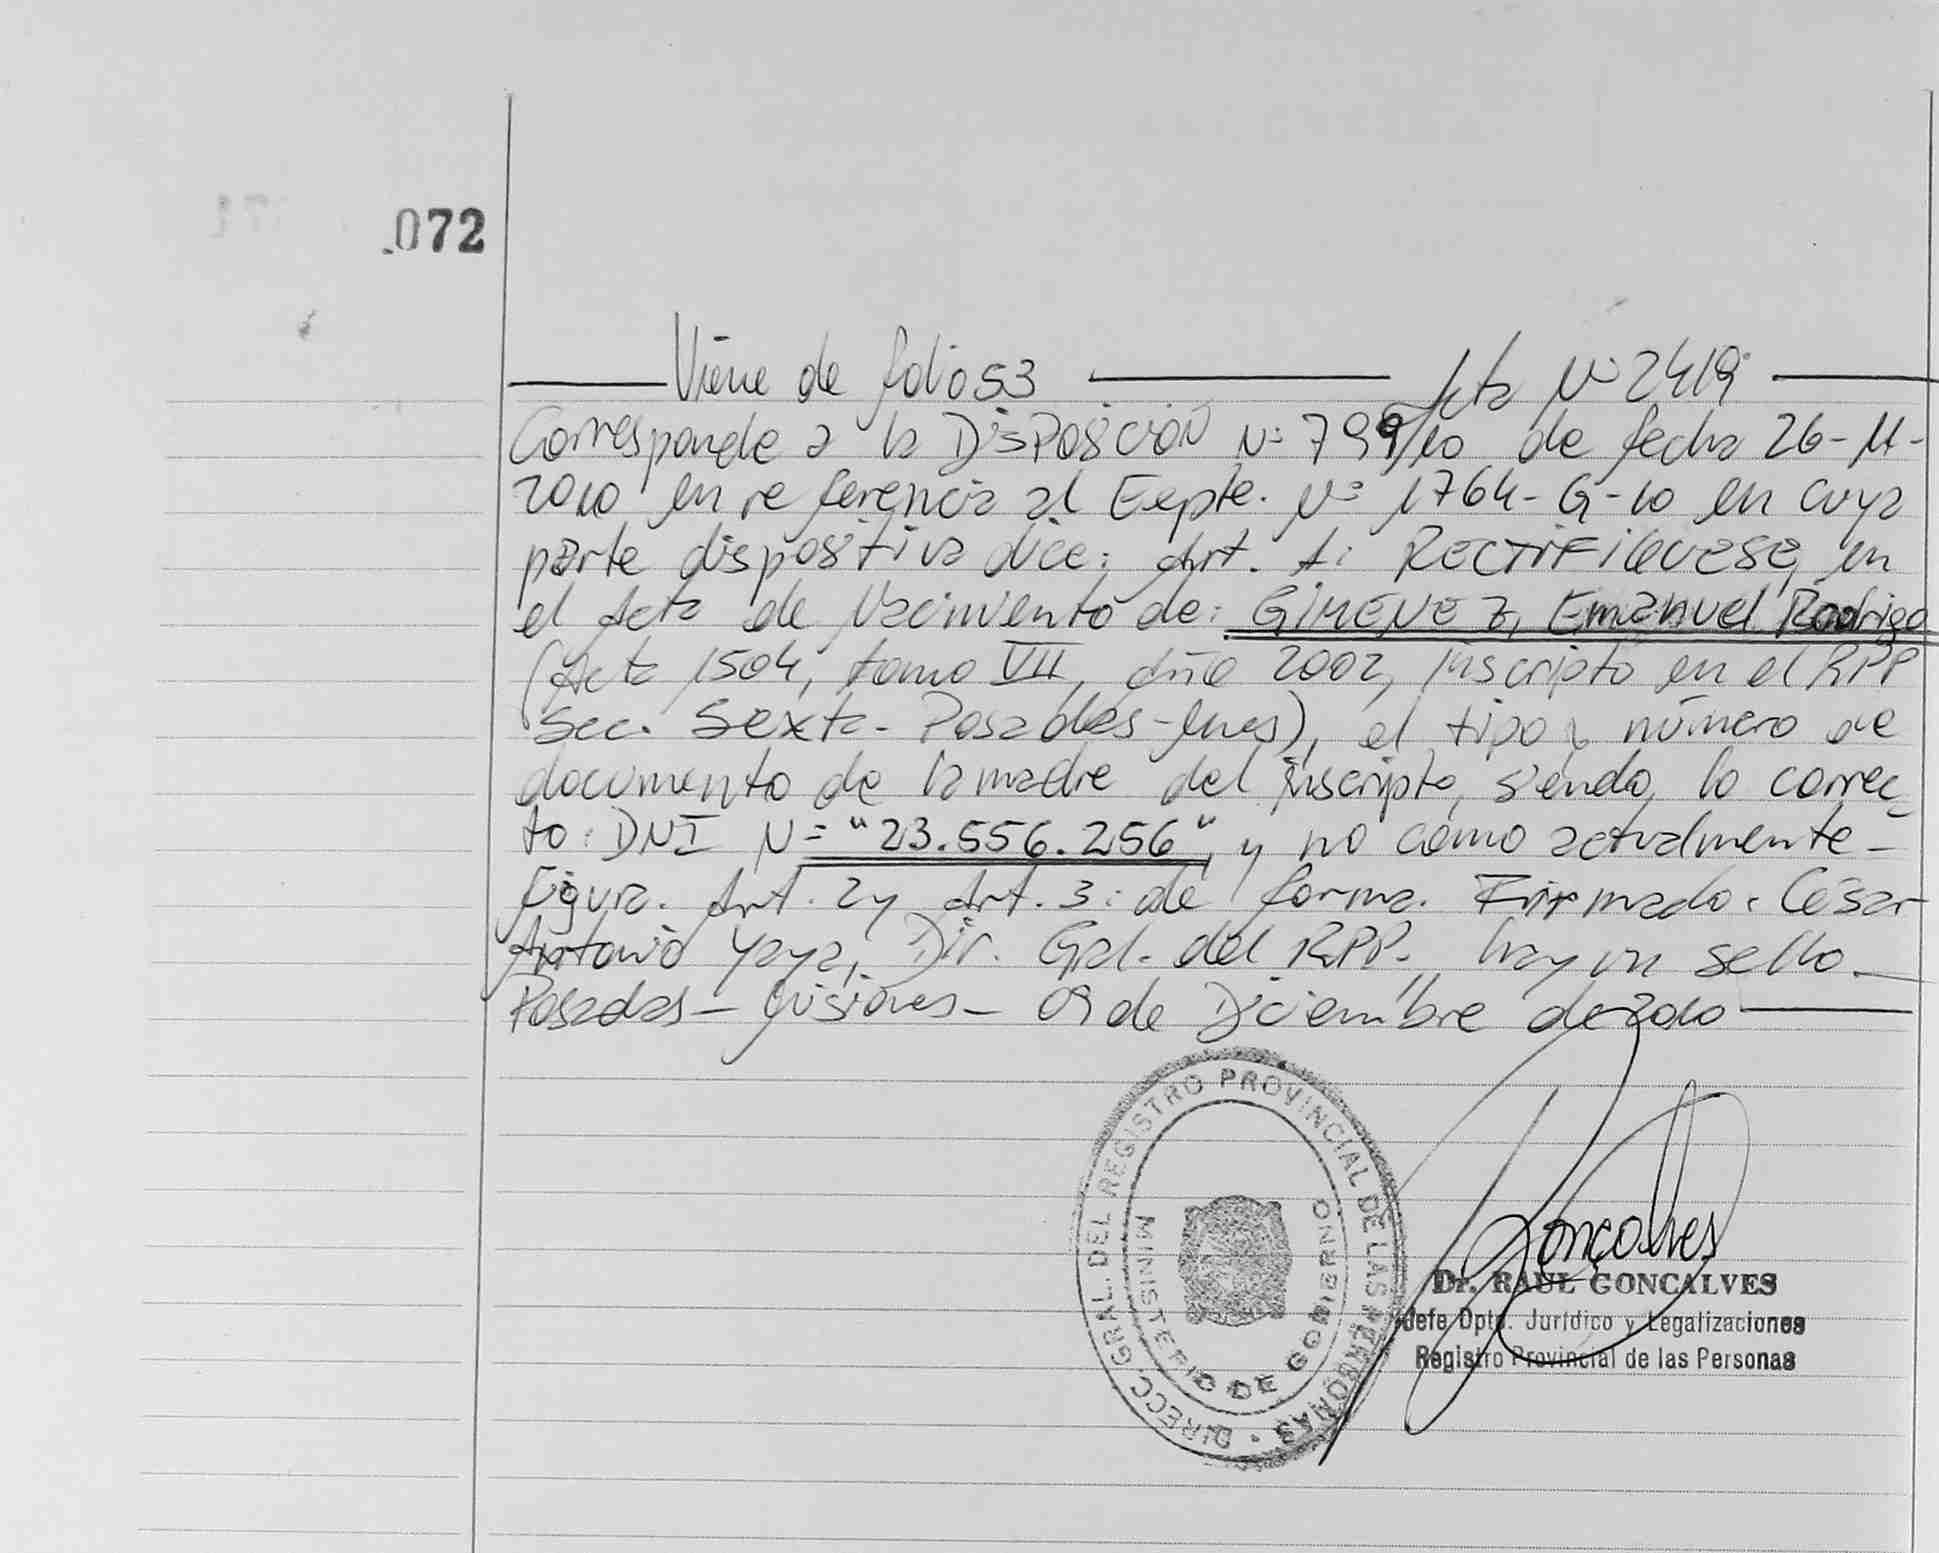 072
Viene de folio 53 Acta Nº 2419
Corresponde a la DISPOSICIÓN Nº 799/10 de fecha 26-11-
2010 en referencia al Expte. Nº 1764-G-10 en cuya
parte dispositiva dice: Art. 1: RECTIFIQUESE, en
el Acta de Nacimiento de: GIMENEZ, Emanuel Rodrigo
(Acta 1504, tomo VII, año 2002, inscripto en el RPP
Sec. Sexta - Posadas-Mnes), el tipo y número de
documento de la madre del inscripto, siendo lo correc-
to: DNI Nº "23.556.256", y no como actualmente
figura. Art. 2 y Art. 3: de forma. Firmado: César
Antonio Yaya, Dir. Gral. del RPP. hay un sello.
Posadas - Misiones - 09 de Diciembre de 2010
DIRECC. GRAL. DEL REGISTRO PROVINCIAL DE LAS PERSONAS
MINISTERIO DE GOBIERNO
Gonçalves
Dr. RAUL GONCALVES
Jefe Dpto. Jurídico y Legalizaciones
Registro Provincial de las Personas